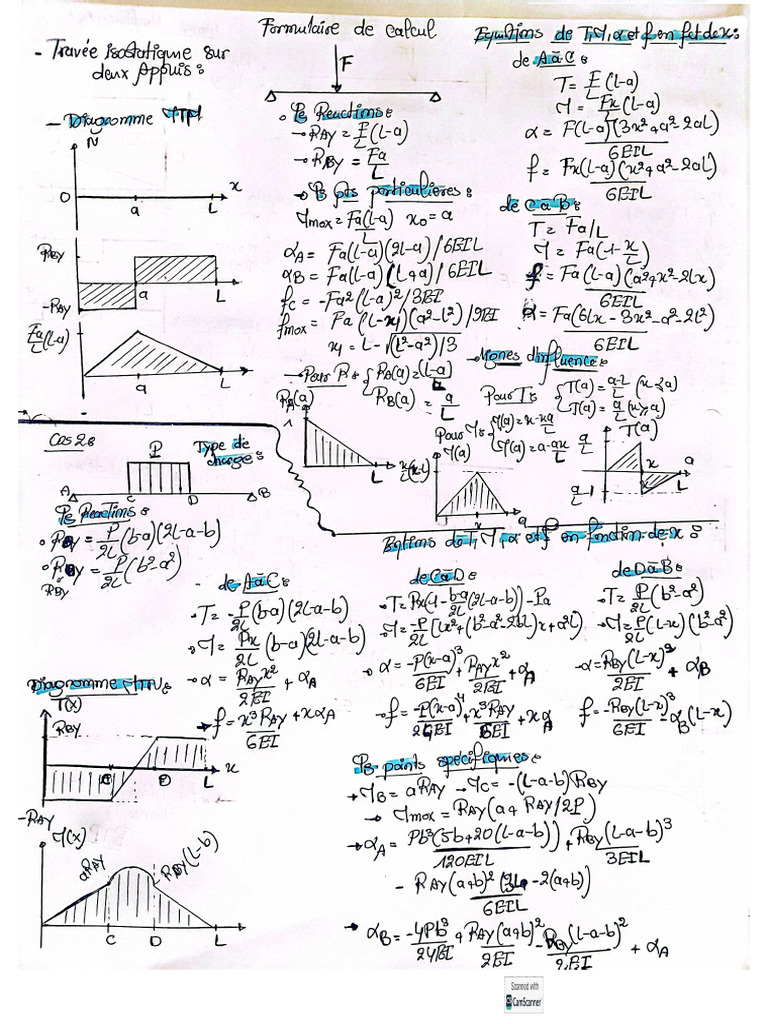 Formulaire de calcul
- Travée isostatique sur
deux Appuis :
F
- Diagramme NTM
N
0
a
L
x
RBY
-RAY
a
L
Fa/L (L-a)
a
L
• Les Reactions :
→ RAY = F/L (L-a)
→ RBY = Fa/L
→ Les pts particulieres :
Mmax = Fa(L-a)/L x0 = a
αA = Fa(L-a)(2L-a)/6EIL
αB = Fa(L-a)(L+a)/6EIL
fC = -Fa²(L-a)²/3EI
fmax = Fa(L-x1)(a²-L²)/9EI
x1 = L-√(L²-a²)/3
→ Pour R : { RA(a) = (L-a)/L
RB(a) = a/L
Equations de T, M, α et f en fct de x :
de A à C :
T = F/L (L-a)
M = Fx/L (L-a)
α = F(L-a)(3x²+a²-2aL)/6EIL
f = Fx(L-a)(x²+a²-2aL)/6EIL
de C à B :
T = Fa/L
M = Fa(1-x/L)
f = Fa(L-a)(a²+x²-2Lx)/6EIL
α = Fa(6Lx-3x²-a²-2L²)/6EIL
→ Lignes d'influence :
Pour T : { T(a) = a-L/L (x⩽a)
T(a) = a/L (x⩾a)
Pour M : { M(a) = x-xa/L
M(a) = a-ax/L
RA(a)
1
L
M(a)
x
a
T(a)
a/L
x
L
a
a/L-1
Cas 2 :
Type de
charge :
P
A
C
D
B
Les Reactions :
• RAY = P/2L (b-a)(2L-a-b)
• RBY = P/2L (b²-a²)
RBY
Eqtions de T, M, α et f en fonction de x :
- de A à C :
→ T = -P/2L (b-a)(2L-a-b)
→ M = Px/2L (b-a)(2L-a-b)
→ α = RAY x²/2EI + αA
→ f = x³ RAY/6EI + x αA
de C à D :
→ T = Px(1 - b-a/2L (2L-a-b)) - Pa
→ M = -P/2L [Lx²+(b²-a²-2bL)x+a²L]
→ α = -P(x-a)³/6EI + RAY x²/2EI + αA
→ f = -P(x-a)⁴/24EI + x³ RAY/6EI + x αA
de D à B :
→ T = P/2L (b²-a²)
→ M = P/2L (L-x)(b²-a²)
- α = RBY(L-x)²/2EI + αB
→ f = -RBY(L-x)³/6EI - αB(L-x)
Diagramme MTN :
T(x)
RBY
C
D
L
x
-RAY
M(x)
aRAY
RBY(L-b)
C
D
L
Les points spécifiques :
→ MB = aRAY → MC = -(L-a-b)RBY
→ Mmax = RAY(a+RAY/2P)
→ αA = Pb³(5b+20(L-a-b))/120EIL + RBY(L-a-b)³/3EIL
- RAY(a+b)²(3L-2(a+b))/6EIL
→ αB = -4Pb³/24EI + RAY(a+b)²/2EI - RBY(L-a-b)²/2EI + αA
Scanned with
CS CamScanner